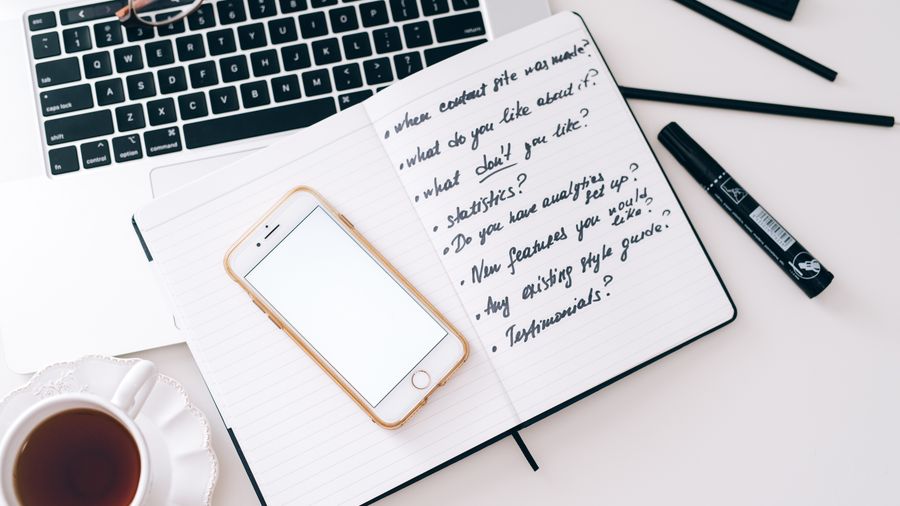 esc
1 2 3 4 5 6 7 8 9 0
tab Q W E R T Y U I O P
caps lock A S D F G H J K L
shift Z X C V B N M
fn control option command
• when content site was made?
• what do you like about it?
• what don't you like?
• statistics?
• Do you have analytics
set up?
• New features you would
like?
• Any existing style guide?
• Testimonials?